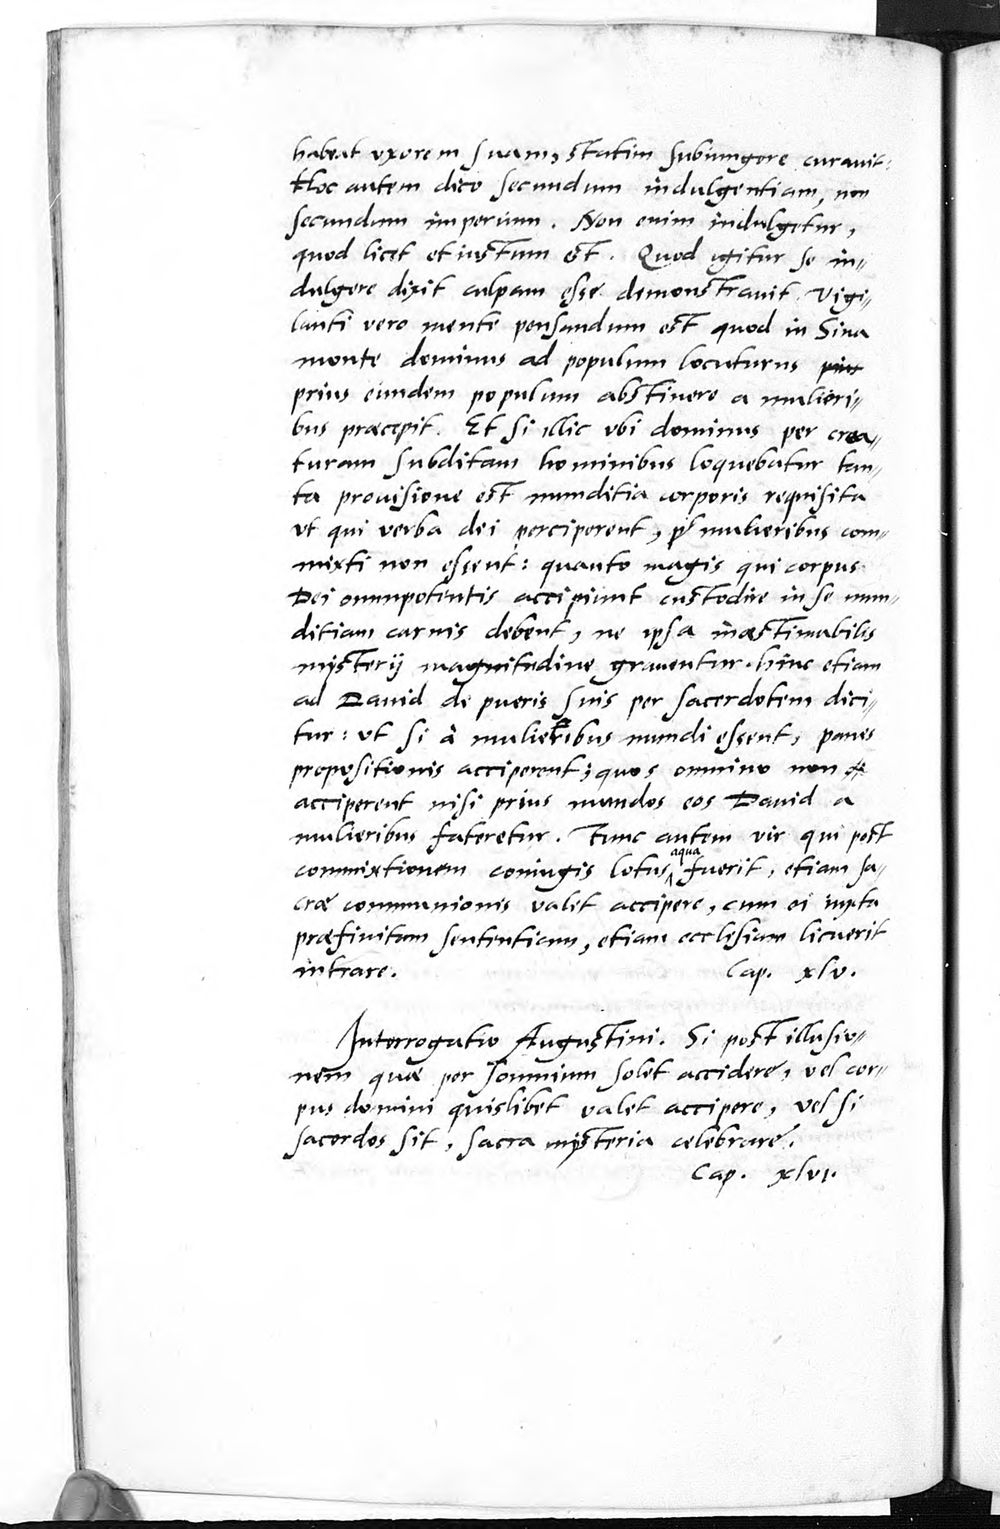 habeat uxorem suam, statim subiungere curauit:
Hoc autem dico secundum indulgentiam, non
secundum imperium. Non enim indulgetur,
quod licet et iustum est. Quod igitur se in-
dulgere dixit culpam esse demonstrauit. Vigi-
lanti vero mente pensandum est quod in Sina
monte dominus ad populum locuturus
prius eundem populum abstinere a mulieri-
bus præcepit. Et si illic ubi dominus per crea-
turam subditam hominibus loquebatur tan-
ta provisione est munditia corporis requisita
ut qui verba dei perciperent, mulieribus com-
mixti non essent: quanto magis qui corpus
Dei omnipotentis accipiunt custodire in se mun-
ditiam carnis debent, ne ipsa inæstimabilis
mysterij magnitudine grauentur. hinc etiam
ad Dauid de pueris suis per sacerdotem dici-
tur: ut si à mulieribus mundi essent, panes
propositionis acciperent; quos omnino non
acciperent nisi prius mundos eos Dauid a
mulieribus fateretur. Tunc autem vir qui post
commixtionem coniugis lotus aqua fuerit, etiam sa-
cræ communionis valet accipere, cum ei iuxta
præfinitam sententiam, etiam ecclesiam licuerit
intrare. Cap. xlv.
Interrogatio Augustini. Si post illusio-
nem quæ per somnium solet accidere, vel cor-
pus domini quislibet valet accipere, vel si
sacerdos sit, sacra mysteria celebrare.
Cap. xlvi.